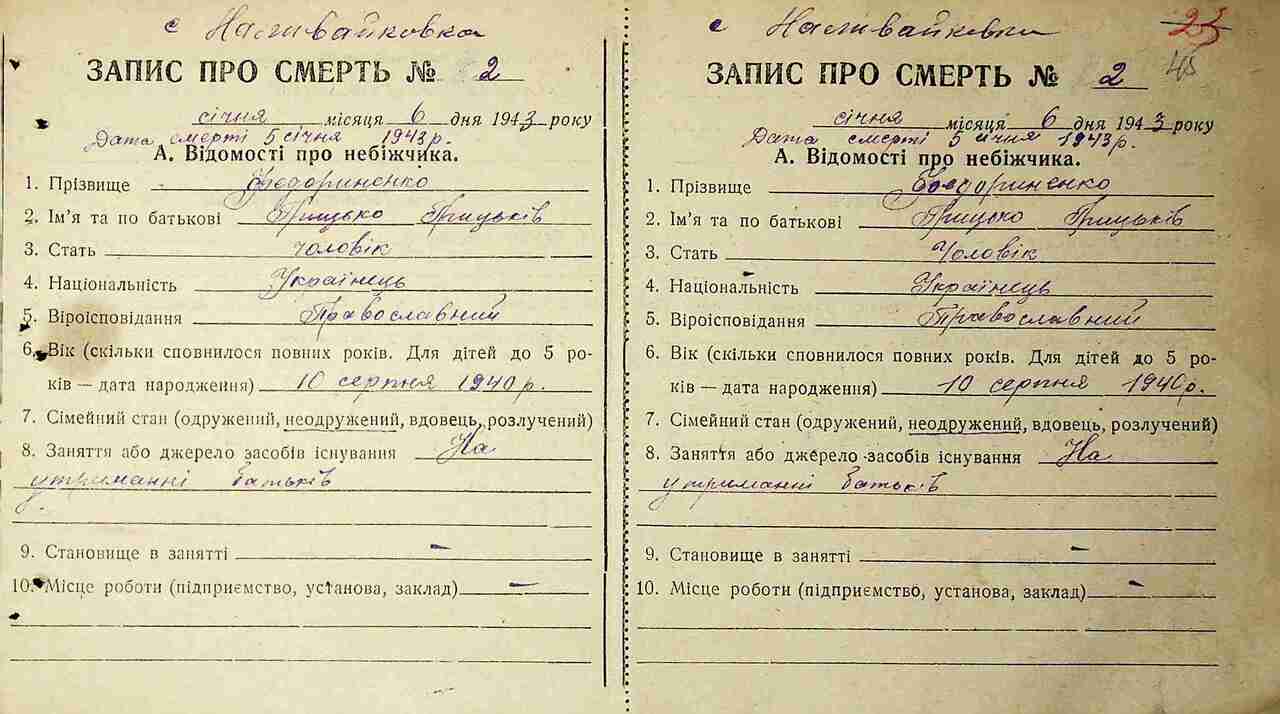 с Наливайковка
ЗАПИС ПРО СМЕРТЬ № 2
січня місяця 6 дня 1943 року
Дата смерті 5 січня 1943 р.
А. Відомості про небіжчика.
1. Прізвище Федориненко
2. Ім'я та по батькові Грицько Грицьків
3. Стать чоловік
4. Національність Українець
5. Віроісповідання Православний
6. Вік (скільки сповнилося повних років. Для дітей до 5 ро-
ків — дата народження) 10 серпня 1940 р.
7. Сімейний стан (одружений, неодружений, вдовець, розлучений)
8. Заняття або джерело засобів існування На
утриманні батьків
9. Становище в занятті –
10. Місце роботи (підприємство, установа, заклад) –
с Наливайковка
23
45
ЗАПИС ПРО СМЕРТЬ № 2
січня місяця 6 дня 1943 року
Дата смерті 5 січня 1943 р.
А. Відомості про небіжчика.
1. Прізвище Федориненко
2. Ім'я та по батькові Грицько Грицьків
3. Стать Чоловік
4. Національність Українець
5. Віроісповідання Православний
6. Вік (скільки сповнилося повних років. Для дітей до 5 ро-
ків — дата народження) 10 серпня 1940 р.
7. Сімейний стан (одружений, неодружений, вдовець, розлучений)
8. Заняття або джерело засобів існування На
утриманні батьків
9. Становище в занятті –
10. Місце роботи (підприємство, установа, заклад) –